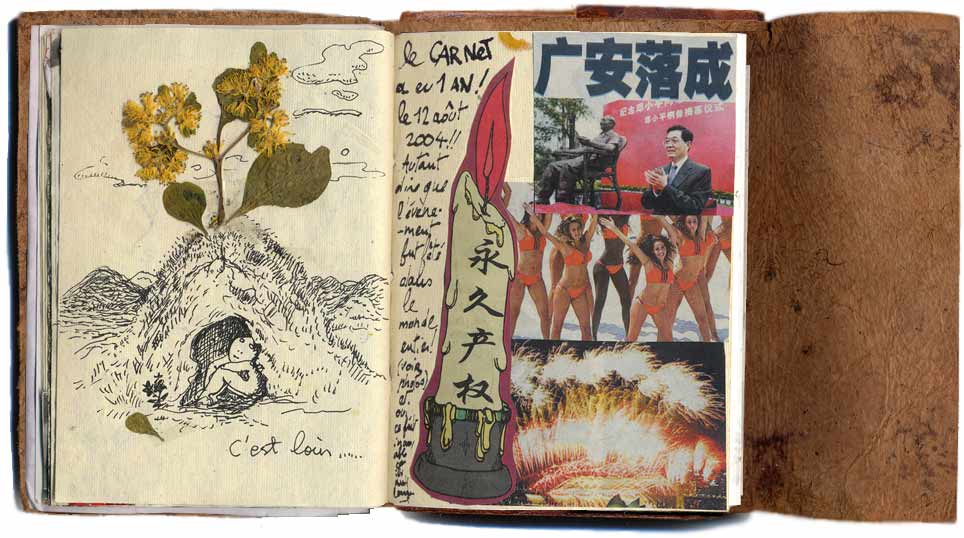 C'est loin.....
le CARNET
a eu 1 AN!
le 12 août
2004!!
Autant
dire que
l'évène-
-ment
fut fêté
dans
le
monde
entier
永
久
产
权
广安落成
纪念邓小平
邓小平铜像揭幕仪式